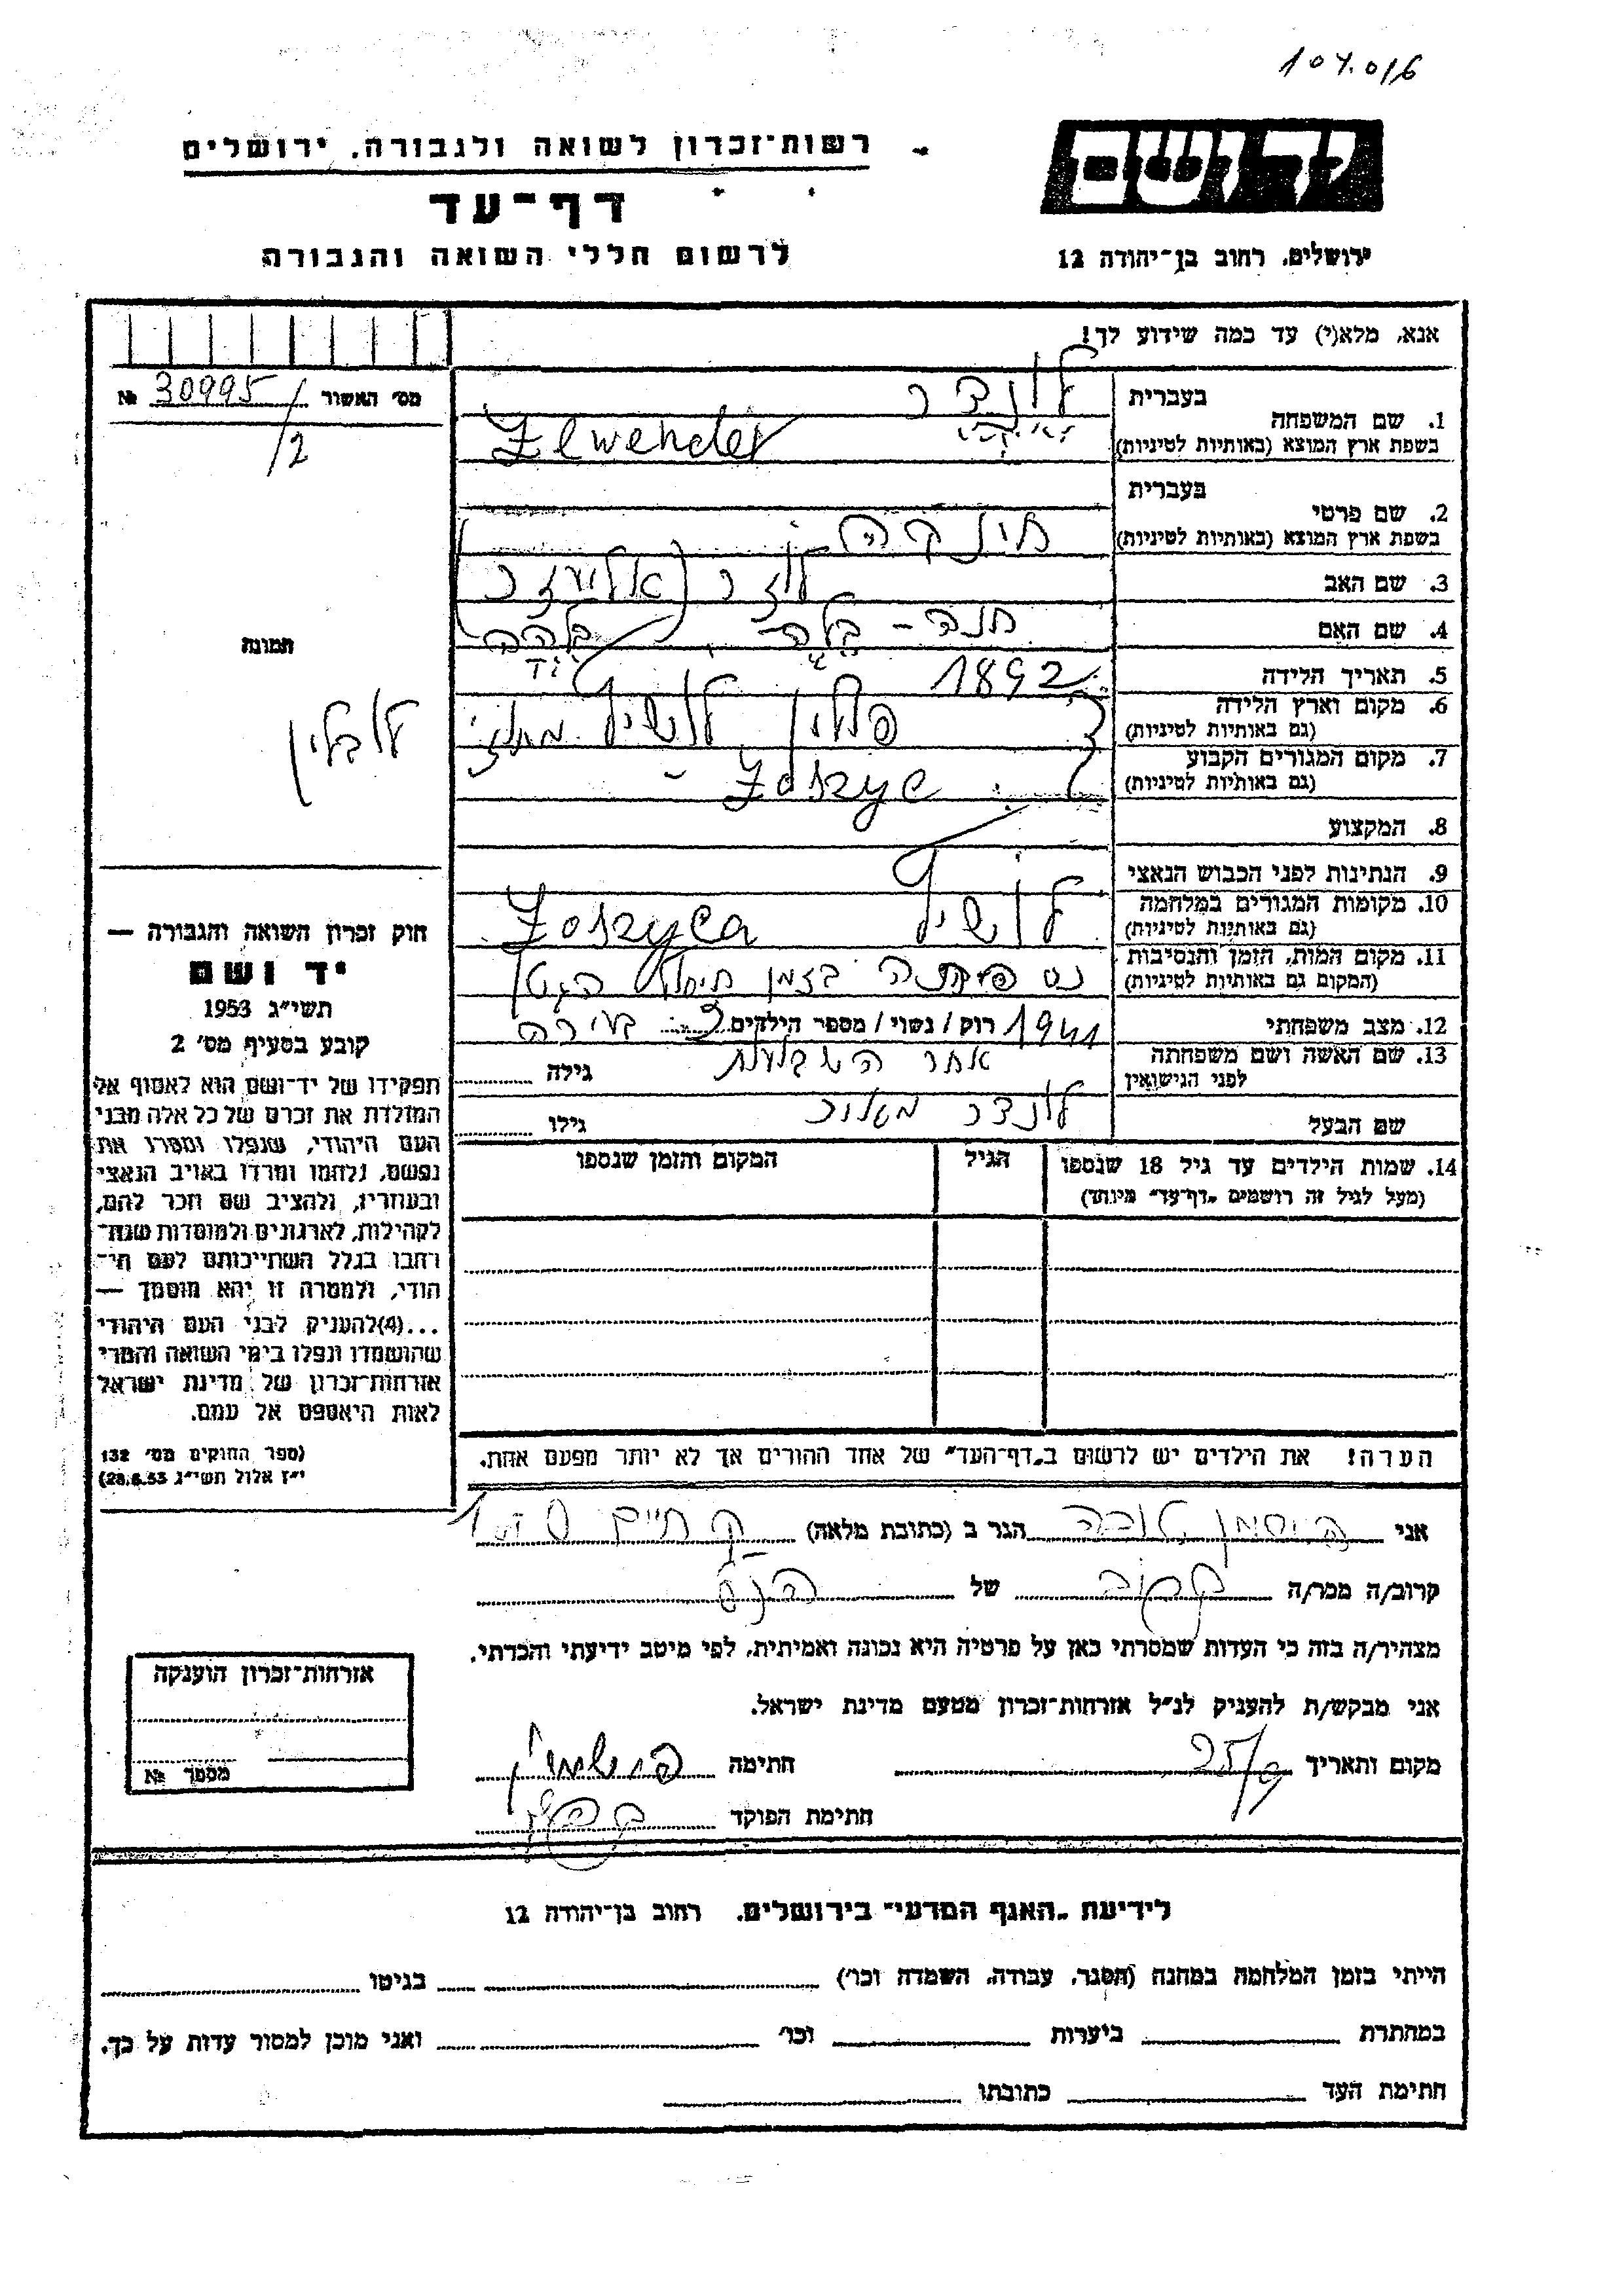 104.016
רשות־זכרון לשואה ולגבורה, ירושלים
דף־עד
לרשום חללי השואה והגבורה
יד ושם
ירושלים, רחוב בן־יהודה 12
אנא, מלא(י) עד כמה שידוע לך!
מס׳ האשור 30995 №
/2
1. שם המשפחה בעברית לונדר
בשפת ארץ המוצא (באותיות לטיניות)
2. שם פרטי בעברית
בשפת ארץ המוצא (באותיות לטיניות)
3. שם האב לוזר (אליעזר)
4. שם האם חנה - בלה
5. תאריך הלידה 1892
6. מקום וארץ הלידה פולין
(גם באותיות לטיניות)
7. מקום המגורים הקבוע
(גם באותיות לטיניות)
8. המקצוע
9. הנתינות לפני הכבוש הנאצי
10. מקומות המגורים במלחמה
(גם באותיות לטיניות)
11. מקום המות, הזמן והנסיבות בזמן חיסול הגטו
(המקום גם באותיות לטיניות)
12. מצב משפחתי 1941 רוק / נשוי / מספר הילדים
13. שם האשה ושם משפחתה גילה
לפני הנישואין
שם הבעל לונדר מאיר גילו
תמונה
לובלין
14. שמות הילדים עד גיל 18 שנספו הגיל המקום והזמן שנספו
(מעל לגיל זה רושמים „דף־עד״ מיוחד)
חוק זכרון השואה והגבורה —
יד ושם
תשי״ג 1953
קובע בסעיף מס׳ 2
תפקידו של יד־ושם הוא לאסוף אל
המולדת את זכרם של כל אלה מבני
העם היהודי, שנפלו ומסרו את
נפשם, נלחמו ומרדו באויב הנאצי
ובעוזריו, ולהציב שם וזכר להם,
לקהילות, לארגונים ולמוסדות שנח־
רבו בגלל השתייכותם לעם הי־
הודי, ולמטרה זו יהא מוסמך —
...(4)להעניק לבני העם היהודי
שהושמדו ונפלו בימי השואה והמרי
אזרחות־זכרון של מדינת ישראל
לאות היאספם אל עמם.
(ספר החוקים מס׳ 132
י״ז אלול תשי״ג 28.8.53)
הערה! את הילדים יש לרשום ב„דף־העד״ של אחד ההורים אך לא יותר מפעם אחת.
אני טובה הגר ב (כתובת מלאה) ק חיים
קרוב/ה מכר/ה קרוב של
מצהיר/ה בזה כי העדות שמסרתי כאן על פרטיה היא נכונה ואמיתית, לפי מיטב ידיעתי והכרתי.
אני מבקש/ת להעניק לנ״ל אזרחות־זכרון מטעם מדינת ישראל.
מקום ותאריך 25/9 חתימה
חתימת הפוקד
אזרחות־זכרון הוענקה
מספר №
לידיעת „האגף המדעי״ בירושלים, רחוב בן־יהודה 12
הייתי בזמן המלחמה במחנה (הסגר, עבודה, השמדה וכו׳) בגיטו
במחתרת ביערות וכו׳ ואני מוכן למסור עדות על כך.
חתימת העד כתובתו